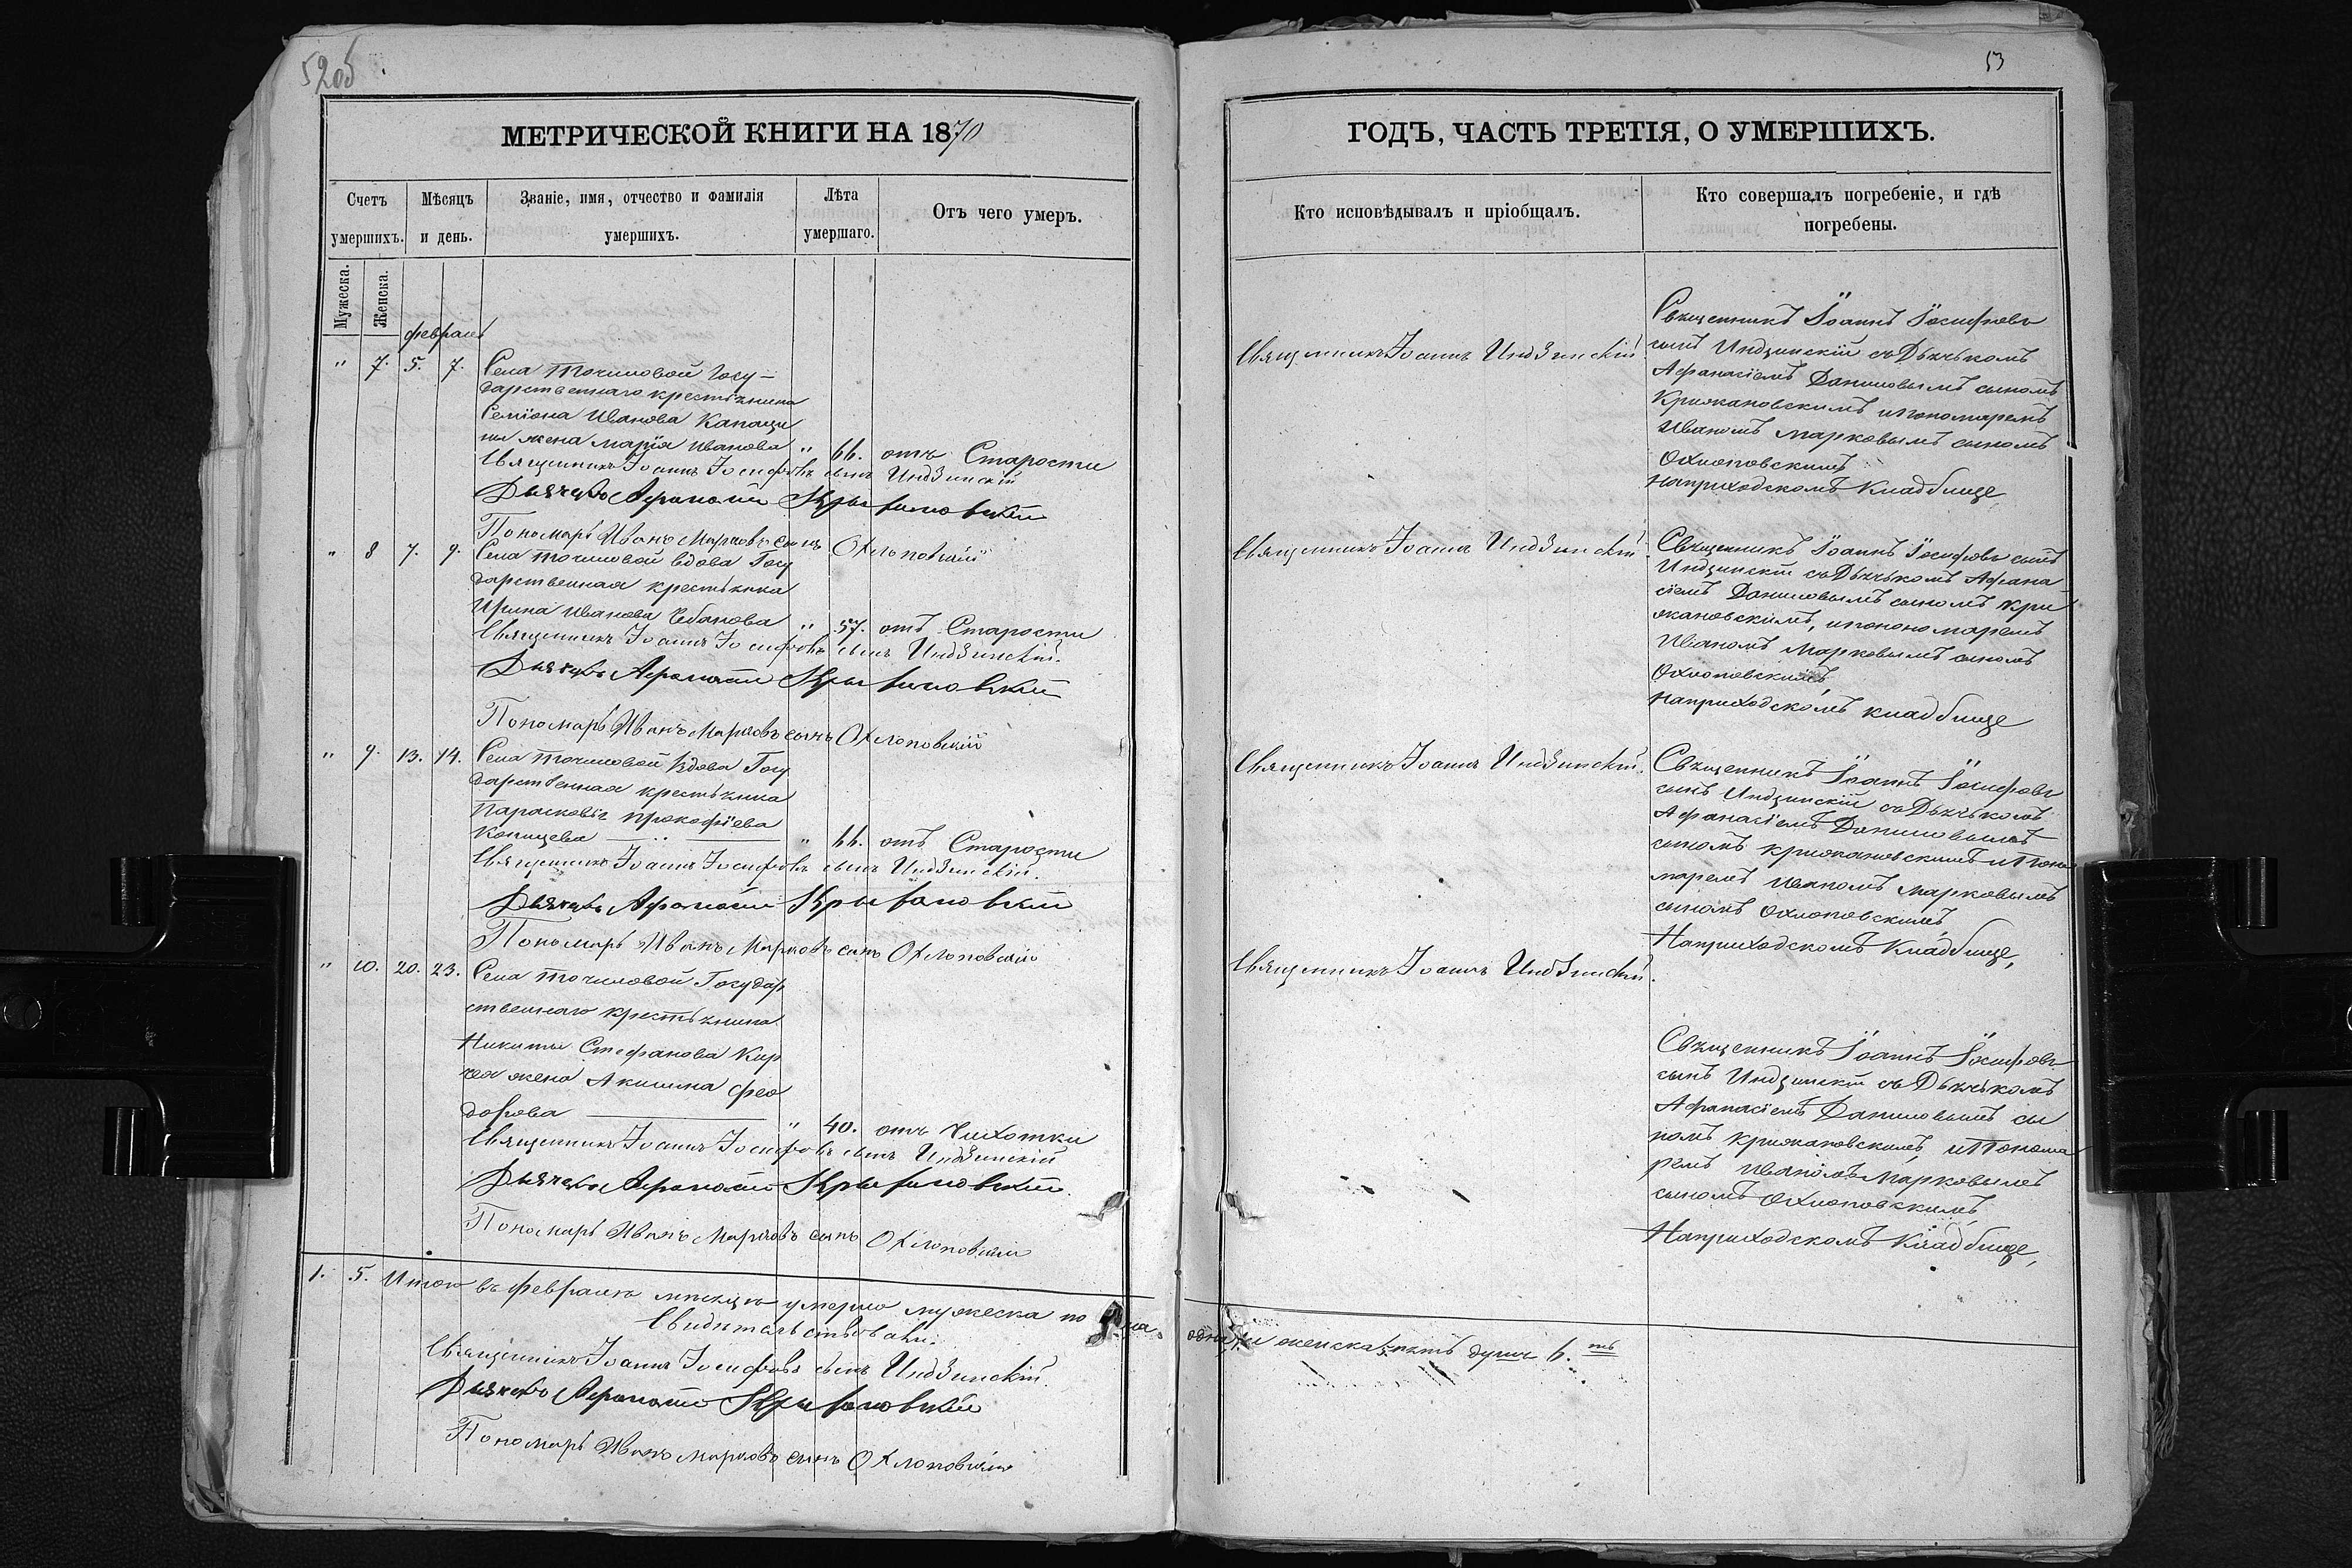 52об
МЕТРИЧЕСКОЙ КНИГИ НА 1870
Счетъ умершихъ.
Мѣсяцъ и день.
Званіе, имя, отчество и фамилія умершихъ.
Лѣта умершаго.
Отъ чего умеръ.
Мужеска.
Женска.
февраль
" 7. 5. 7. Села Точиловой Госу-
дарственнаго крестьянина
Семіона Иванова
жена Марія Иванова " 66. отъ Старости
Священникъ Іоаннъ Іосифовъ сынъ Индзинскій
Дьячекъ Афанасій Крыжановскій
Пономарь Иванъ Марковъ сынъ Охлоповскій
" 8 7. 9. Села Точиловой вдова Госу
дарственная крестьянка
Ирина Иванова Чебанова " 57. отъ Старости
Священникъ Іоаннъ Іосифовъ сынъ Индзинскій.
Дьячекъ Афанасій Крыжановскій
Пономарь Иванъ Марковъ сынъ Охлоповскій
" 9. 13. 14. Села Точиловой Вдова Госу
дарственная крестьянка
Парасковія Прокофіева
" 66. отъ Старости
Священникъ Іоаннъ Іосифовъ сынъ Индзинскій.
Дьячекъ Афанасій Крыжановскій
Пономарь Иванъ Марковъ сынъ Охлоповскій
" 10. 20. 23. Села Точиловой Государ
ственнаго крестьянина
Никиты Стефанова Кир
чея жена Акилина Фео
дорова " 40. отъ Чихотки
Священникъ Іоаннъ Іосифовъ сынъ Индзинскій
Дьячекъ Афанасій Крыжановскій.
Пономарь Иванъ Марковъ сынъ Охлоповскій
1. 5. Итого въ февралѣ мѣсяцѣ умерло мужеска пола
Свидѣтельствовали:
Священникъ Іоаннъ Іосифовъ сынъ Индзинскій
Дьячекъ Афанасій Крыжановскій
Пономарь Иванъ Марковъ сынъ Охлоповскій
53
ГОДЪ, ЧАСТЬ ТРЕТІЯ, О УМЕРШИХЪ.
Кто исповѣдывалъ и пріобщалъ.
Кто совершалъ погребеніе, и гдѣ
погребены.
Священникъ Іоаннъ Индзинскій
Священникъ Іоаннъ Іосифовъ
сынъ Индзинскій съ Дьячькомъ
Афанасіемъ Даниловымъ сыномъ
Крижановскимъ и пономаремъ
Иваномъ Марковымъ сыномъ
Охлоповскимъ
на приходскомъ Кладбище
Священникъ Іоаннъ Индзинскій
Священникъ Іоаннъ Іосифовъ сынъ
Индзинскій съ Дьячькомъ Афана
сіемъ Даниловымъ сыномъ Кри
жановскимъ, и понономаремъ
Иваномъ Марковымъ сыномъ
Охлоповскимъ,
на приходскомъ кладбище
Священникъ Іоаннъ Индзинскій.
Священникъ Іоаннъ Іосифовъ
сынъ Индзинскій съ Дьячькомъ
Афанасіемъ Даниловымъ
сыномъ Крижановскимъ и Поно
маремъ Иваномъ Марковымъ
сыномъ Охлоповскимъ,
На приходскомъ Кладбище,
Священникъ Іоаннъ Индзинскій.
Священникъ Іоаннъ Іосифовъ
сынъ Индзинскій съ Дьячькомъ
Афанасіемъ Даниловымъ сы
номъ Крижановскимъ, и Понома
ремъ Иваномъ Марковымъ
сыномъ Охлоповскимъ,
На приходскомъ Кладбище,
одна 1. и женска 5. пять душъ 6.ть